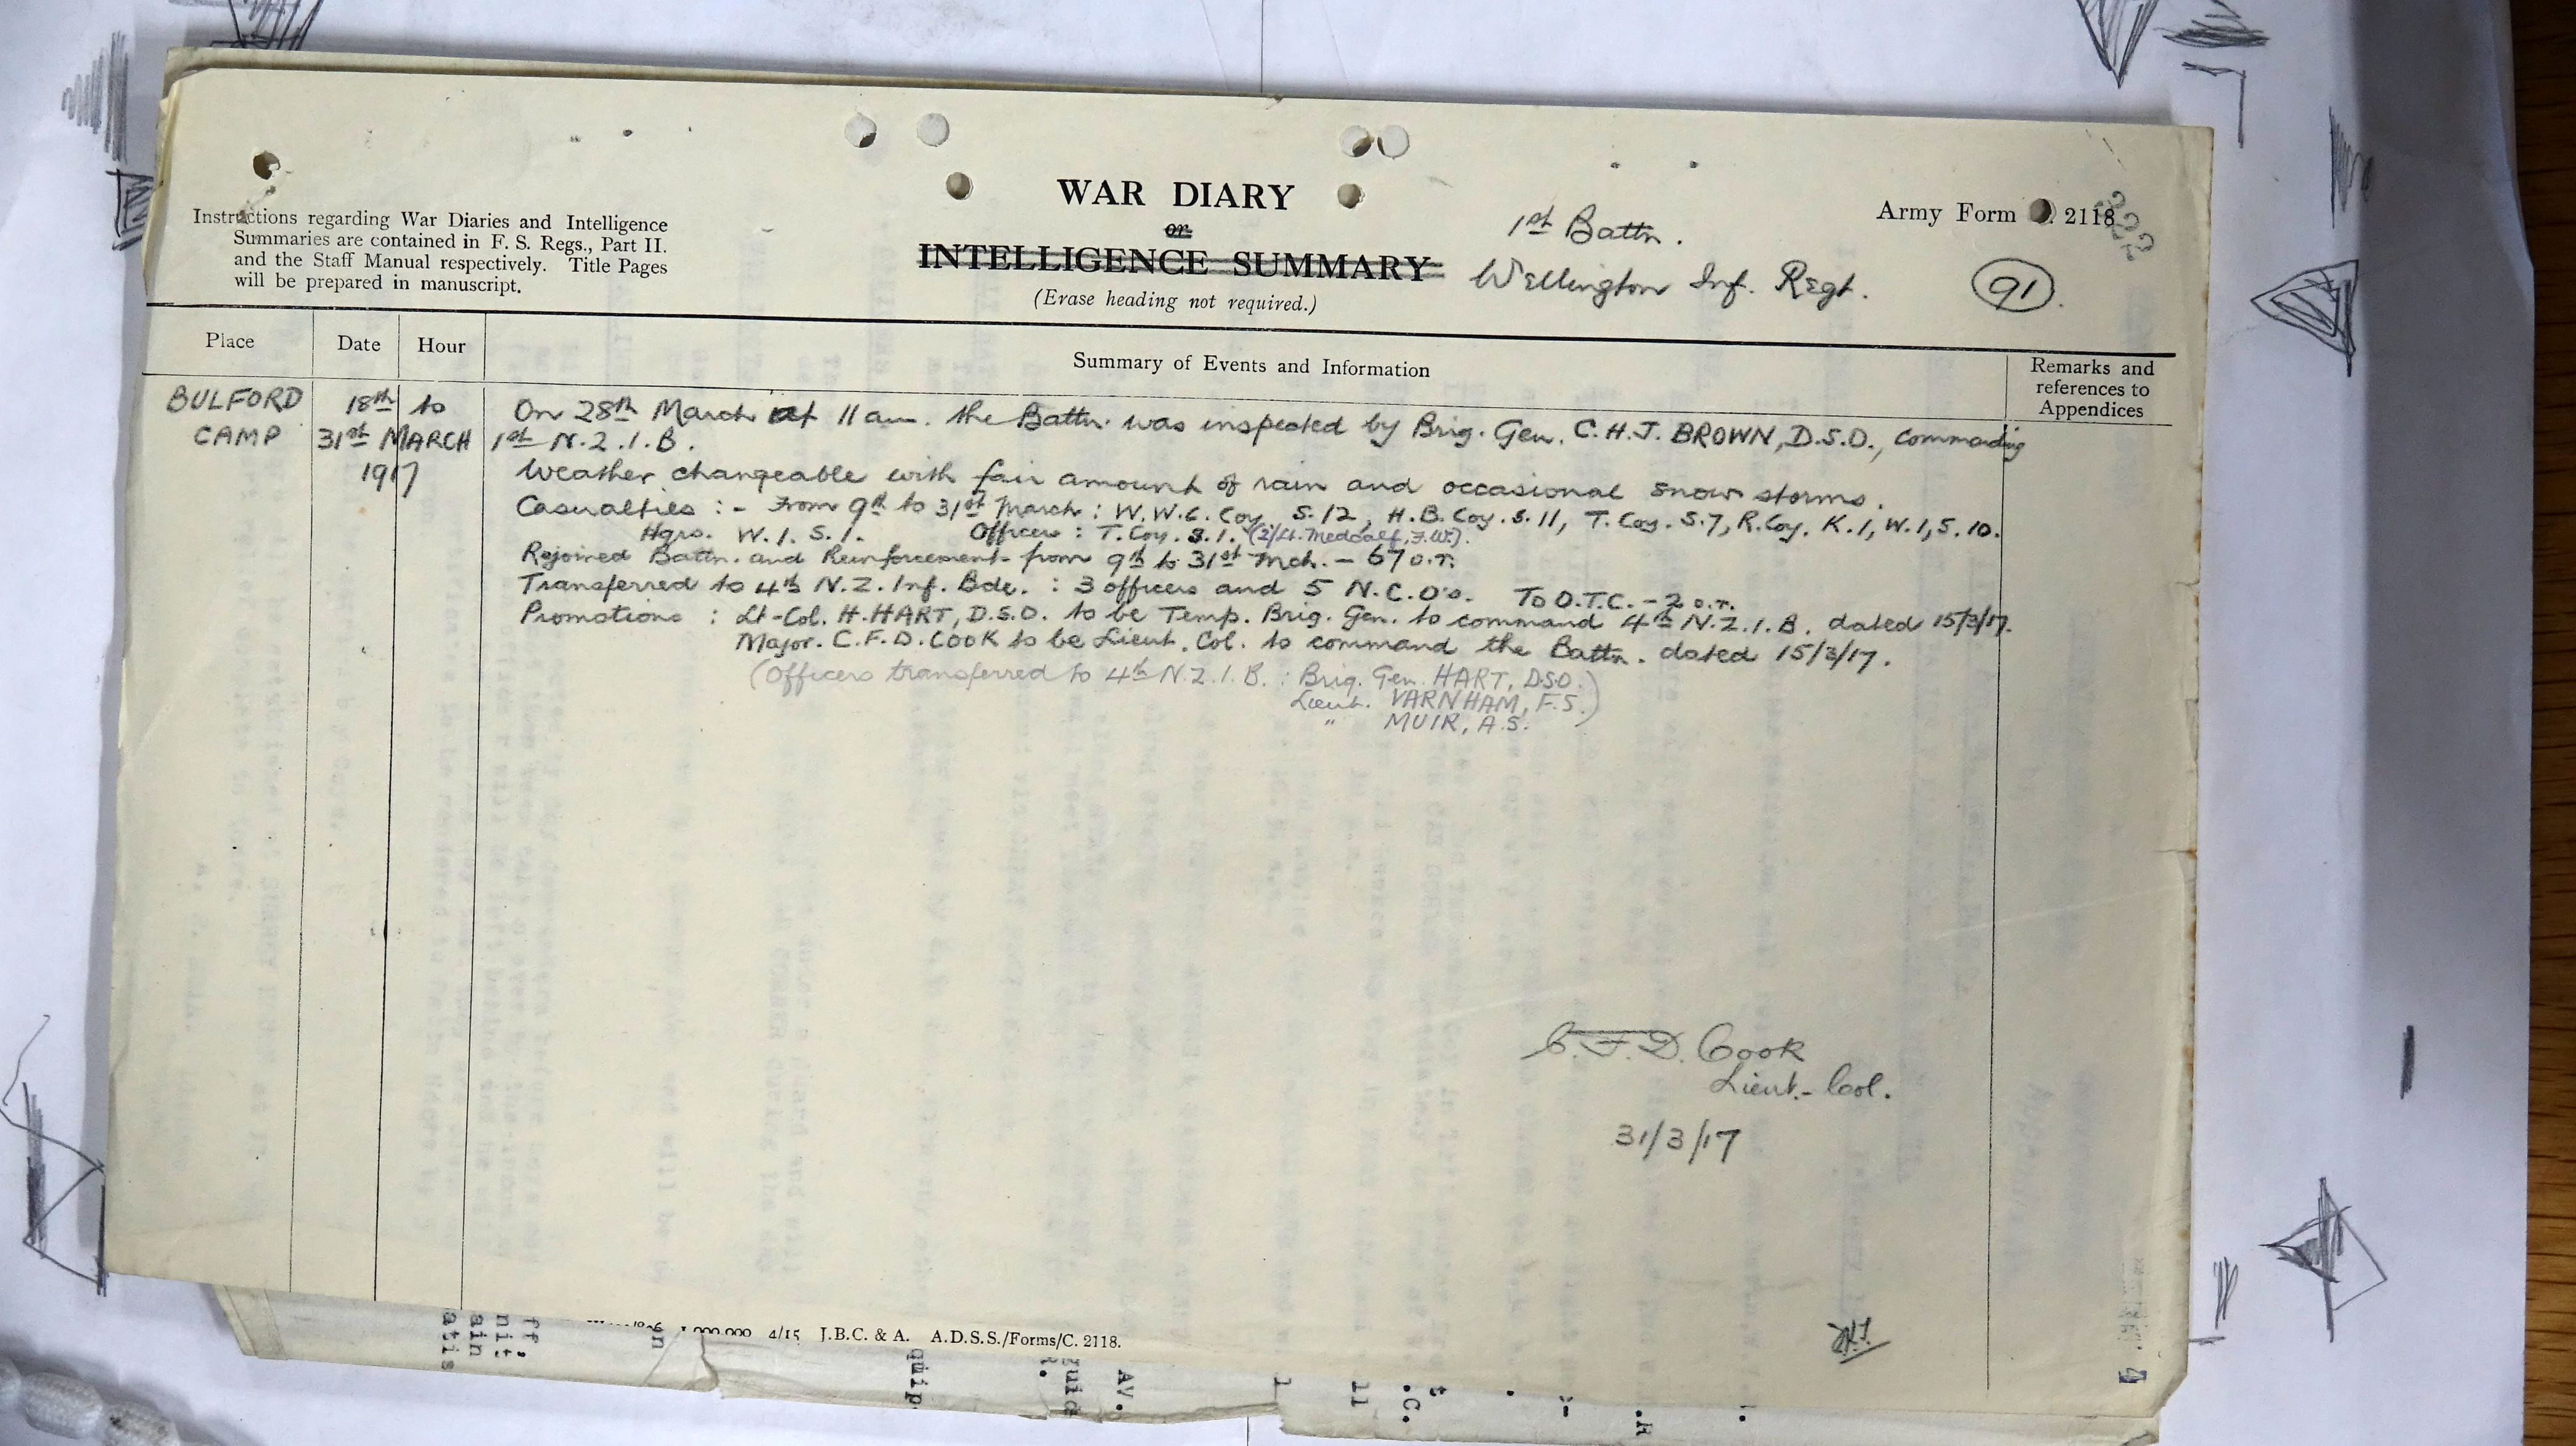 WAR DIARY
or
INTELLIGENCE SUMMARY
(Erase heading not required.)
Instructions regarding War Diaries and Intelligence
Summaries are contained in F. S. Regs., Part II.
and the Staff Manual respectively. Title Pages
will be prepared in manuscript.
1st Battn.
Wellington Inf. Regt.
Army Form . 2118
91
Place
Date
Hour
Summary of Events and Information
Remarks and
references to
Appendices
BULFORD CAMP
18th to
31st MARCH
1917
On 28th March at 11 am. the Battn. was inspected by Brig. Gen. C.H.J. BROWN, D.S.O., commanding
1st N.Z.I.B.
Weather changeable with fair amount of rain and occasional snow storms.
Casualties :- From 9th to 31st March : W.W.C. Coy S.12, H.B. Coy. S.11, T. Coy. S.7, R. Coy. K.1, W.1, S.10.
Hqrs. W.1. S.1. Officers : T. Coy. S.1. (2/Lt. Medcalf, F.W.).
Rejoined Battn. and Reinforcement from 9th to 31st Mch. - 67 o.r.
Transferred to 4th N.Z. Inf. Bde. : 3 officers and 5 N.C.O's. To O.T.C. - 2 o.r.
Promotions : Lt-Col. H. HART, D.S.O. to be Temp. Brig. Gen. to command 4th N.Z.I.B. dated 15/3/17.
Major. C.F.D. COOK to be Lieut. Col. to command the Battn. dated 15/3/17.
(Officers transferred to 4th N.Z.I.B. : Brig. Gen. HART, D.S.O.
Lieut. VARNHAM, F.S.)
" MUIR, A.S.
C.F.D. Cook
Lieut.-Col.
31/3/17
4/15 J.B.C. & A. A.D.S.S./Forms/C. 2118.